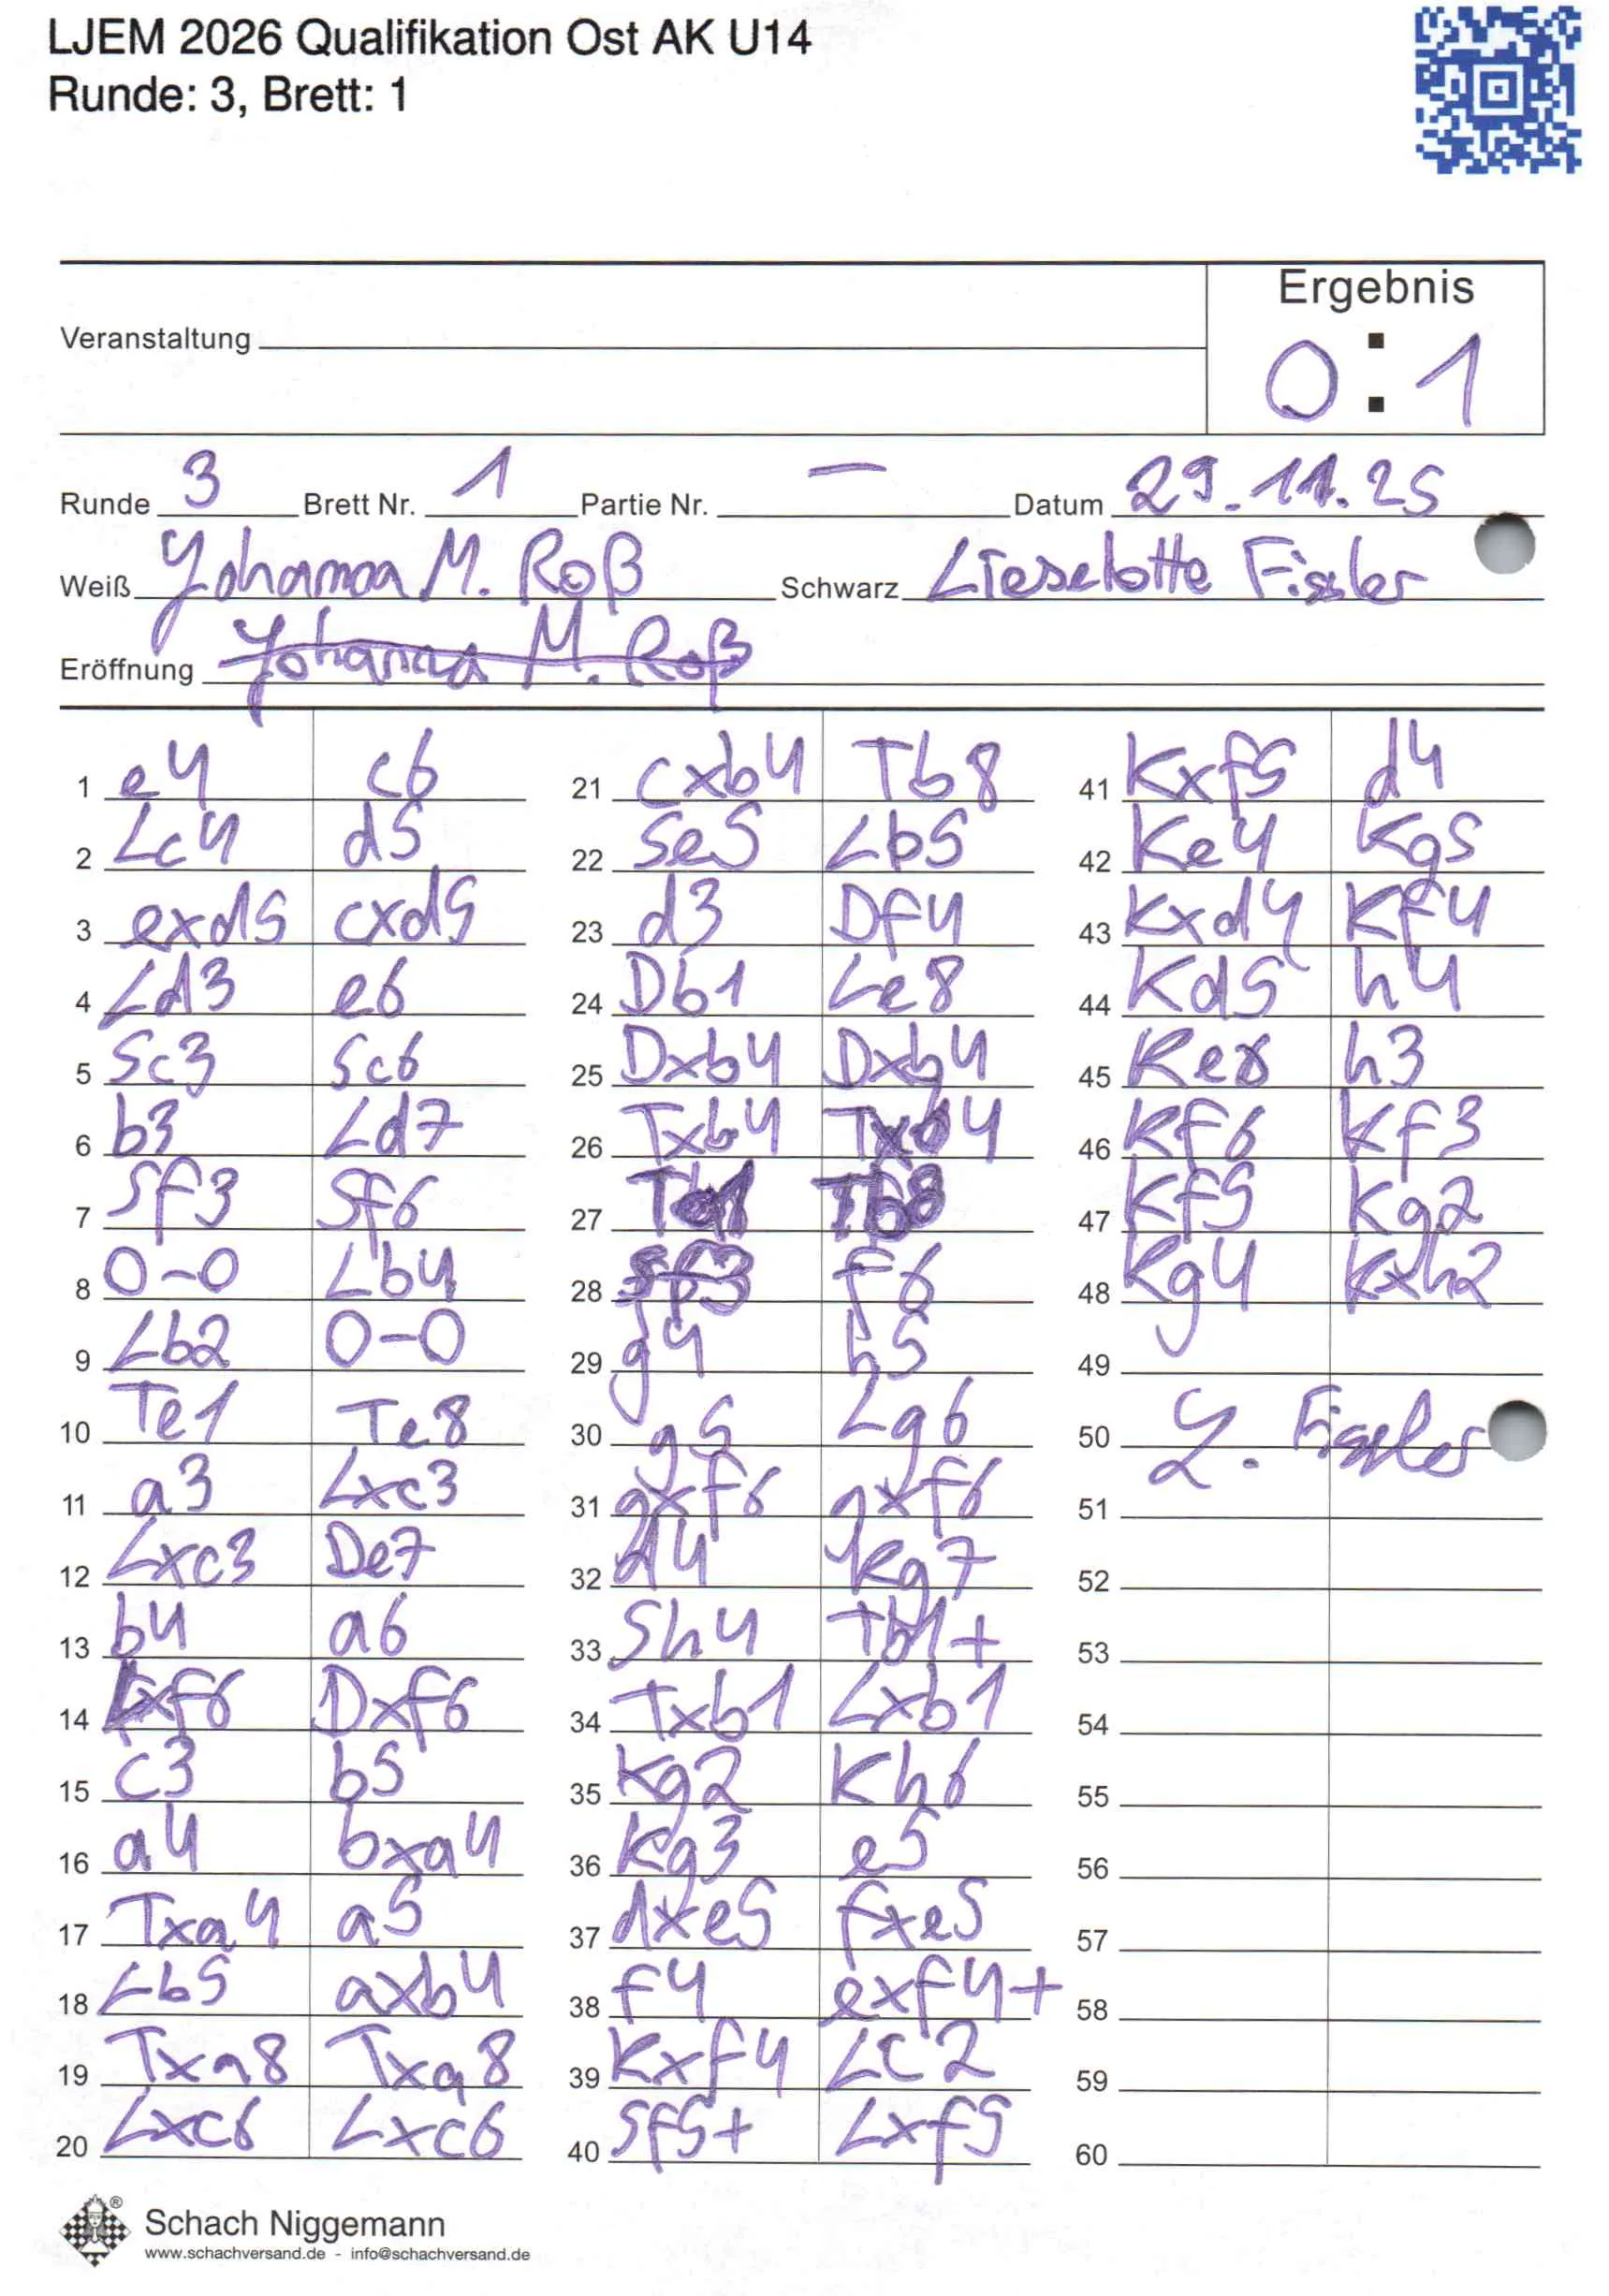 LJEM 2026 Qualifikation Ost AK U14
Runde: 3, Brett: 1
Ergebnis
Veranstaltung
0 : 1
Runde 3 Brett Nr. 1 Partie Nr. — Datum 29.11.25
Weiß Johanna M. Roß Schwarz Lieselotte Fissler
Eröffnung Johanna M. Roß
1 e4 c6
2 Lc4 d5
3 exd5 cxd5
4 Ld3 e6
5 Sc3 Sc6
6 b3 Ld7
7 Sf3 Sf6
8 0-0 Lb4
9 Lb2 0-0
10 Te1 Te8
11 a3 Lxc3
12 Lxc3 De7
13 b4 a6
14 Lxf6 Dxf6
15 c3 b5
16 a4 bxa4
17 Txa4 a5
18 Lb5 axb4
19 Txa8 Txa8
20 Lxc6 Lxc6
21 cxb4 Tb8
22 Se5 Lb5
23 d3 Df4
24 Db1 Le8
25 Dxb4 Dxb4
26 Txb4 Txb4
27 Te1 Tb8
28 Sf3 f6
29 g4 h5
30 g5 Lg6
31 gxf6 gxf6
32 d4 Kg7
33 Sh4 Tb1+
34 Txb1 Lxb1
35 Kg2 Kh6
36 Kg3 e5
37 dxe5 fxe5
38 f4 exf4+
39 Kxf4 LC2
40 Sf5+ Lxf5
41 Kxf5 d4
42 Ke4 Kg5
43 Kxd4 Kf4
44 Kd5 h4
45 Ke6 h3
46 Kf6 Kf3
47 Kf5 Kg2
48 Kg4 Kxh2
49
50 L. Fissler
51
52
53
54
55
56
57
58
59
60
Schach Niggemann
www.schachversand.de - info@schachversand.de